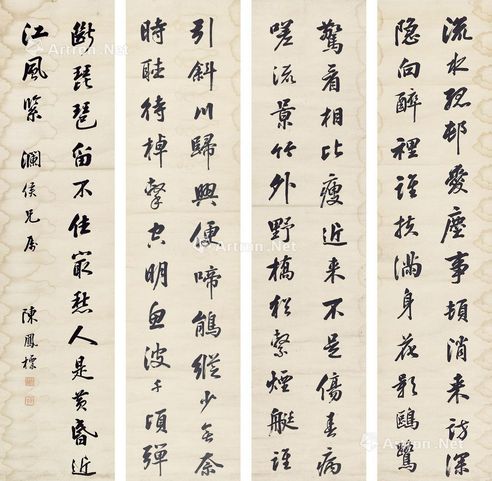 流水孤邨愛塵事頓消来訪深
隐向醉裡誰扶滿身花影鷗鷺
驚看相比瘦近来不是傷春病
嗟流景竹外野橋猶繫煙艇誰
引斜川歸興便啼鵑縱少無奈
時聽待棹擊空明魚波千頃彈
斷琵琶留不住最愁人是黄昏近
江風緊 瀾侯兄屬 陳鳳標
Artron.Net